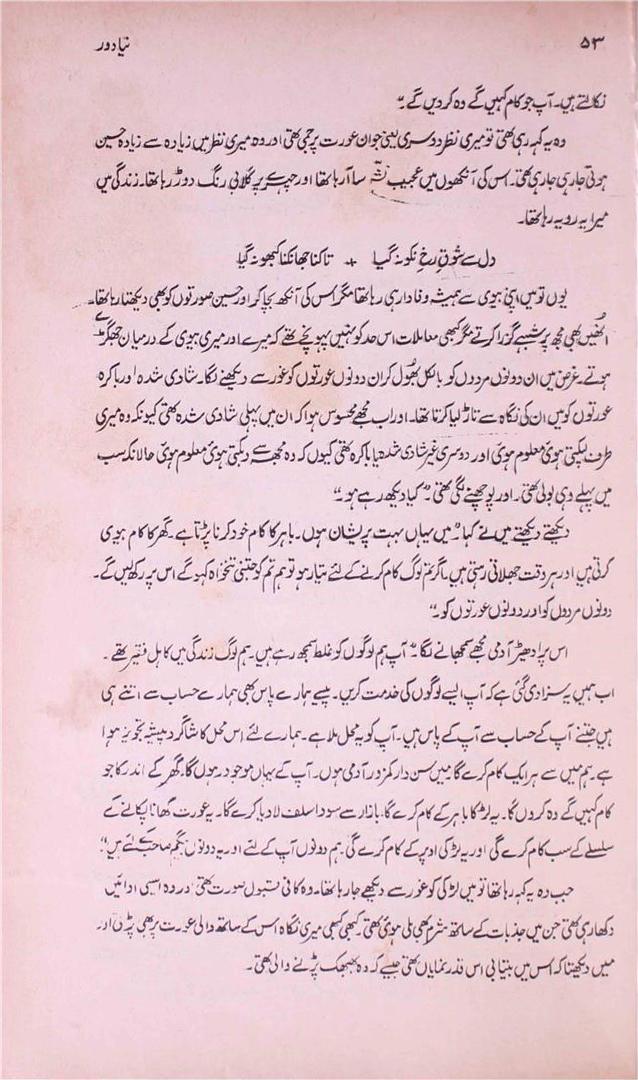 ۵۳ نیا دور
نکالتے ہیں۔ آپ جو کام کہیں گے وہ کر دیں گے۔"
وہ یہ کہہ رہی تھی تو میری نظر دوسری یعنی جوان عورت پر جمی تھی اور وہ میری نظر میں زیادہ سے زیادہ حسین
ہوتی جا رہی تھی۔ اس کی آنکھوں میں عجیب نشہ سا آ رہا تھا اور چہرے پر گلابی رنگ دوڑ رہا تھا۔ زندگی میں
میرا یہ رویہ رہا تھا۔
دل سے شوقِ رخِ نکو نہ گیا + تاکنا جھانکنا کبھو نہ گیا
یوں تو میں اپنی بیوی سے ہمیشہ وفادار ہی رہا تھا مگر اس کی آنکھ بچا کر اور حسین صورتوں کو بھی دیکھتا رہا تھا۔
انھیں بھی مجھ پر شبہے گزرا کرتے مگر کبھی معاملات اس حد کو نہیں پہونچے تھے کہ میرے اور میری بیوی کے درمیان جھگڑے
ہوتے۔ غرض میں ان دونوں مردوں کو بالکل بھول کر ان دونوں عورتوں کو غور سے دیکھنے لگا۔ شادی شدہ اور باکرہ
عورتوں کو میں ان کی نگاہ سے تاڑ لیا کرتا تھا۔ اور اب مجھے محسوس ہوا کہ ان میں پہلی شادی شدہ تھی کیونکہ وہ میری
طرف لپکتی ہوئی معلوم ہوئی اور دوسری غیر شادی شدہ یا باکرہ تھی کیوں کہ وہ مجھ سے دبکتی ہوئی معلوم ہوئی حالانکہ سب
میں پہلے وہی بولی تھی۔ اور پوچھنے لگی تھی۔ "کیا دیکھ رہے ہو۔"
دیکھتے دیکھتے میں نے کہا۔ "میں یہاں بہت پریشان ہوں۔ باہر کا کام خود کرنا پڑتا ہے۔ گھر کا کام بیوی
کرتی ہیں اور ہر وقت جھلاتی رہتی ہیں۔ اگر تم لوگ کام کرنے کے لئے تیار ہو تو ہم تم کو جتنی تنخواہ کہو گے اس پر رکھ لیں گے۔
دونوں مردوں کو اور دونوں عورتوں کو۔"
اس پر ادھیڑ آدمی مجھے سمجھانے لگا۔ "آپ ہم لوگوں کو غلط سمجھ رہے ہیں۔ ہم لوگ زندگی میں کاہل فقیر تھے۔
اب ہمیں یہ سزا دی گئی ہے کہ آپ ایسے لوگوں کی خدمت کریں۔ پیسے ہمارے پاس بھی ہمارے حساب سے اتنے ہی
ہیں جتنے آپ کے حساب سے آپ کے پاس ہیں۔ آپ کو یہ محل ملا ہے۔ ہمارے لئے اس محل کا شاگرد پیشہ تجویز ہوا
ہے۔ ہم میں سے ہر ایک کام کرے گا میں سن دار کمزور آدمی ہوں۔ آپ کے یہاں موجود رہوں گا۔ گھر کے اندر کا جو
کام کہیں گے وہ کروں گا۔ یہ لڑکا باہر کے کام کرے گا، بازار سے سودا سلف لا دیا کرے گا۔ یہ عورت کھانا پکانے کے
سلسلے کے سب کام کرے گی اور یہ لڑکی اوپر کے کام کرے گی۔ ہم دونوں آپ کے لئے اور یہ دونوں بیگم صاحب کے لئے ہیں"
جب وہ یہ کہہ رہا تھا تو میں لڑکی کو غور سے دیکھے جا رہا تھا۔ وہ کافی قبول صورت تھی اور وہ ایسی ادائیں
دکھا رہی تھی جن میں جذبات کے ساتھ شرم بھی ملی ہوئی تھی۔ کبھی کبھی میری نگاہ اس کے ساتھ والی عورت پر بھی پڑتی اور
میں دیکھتا کہ اس میں بیتابی اس قدر نمایاں تھی جیسے کہ وہ بھبھک پڑنے والی تھی۔